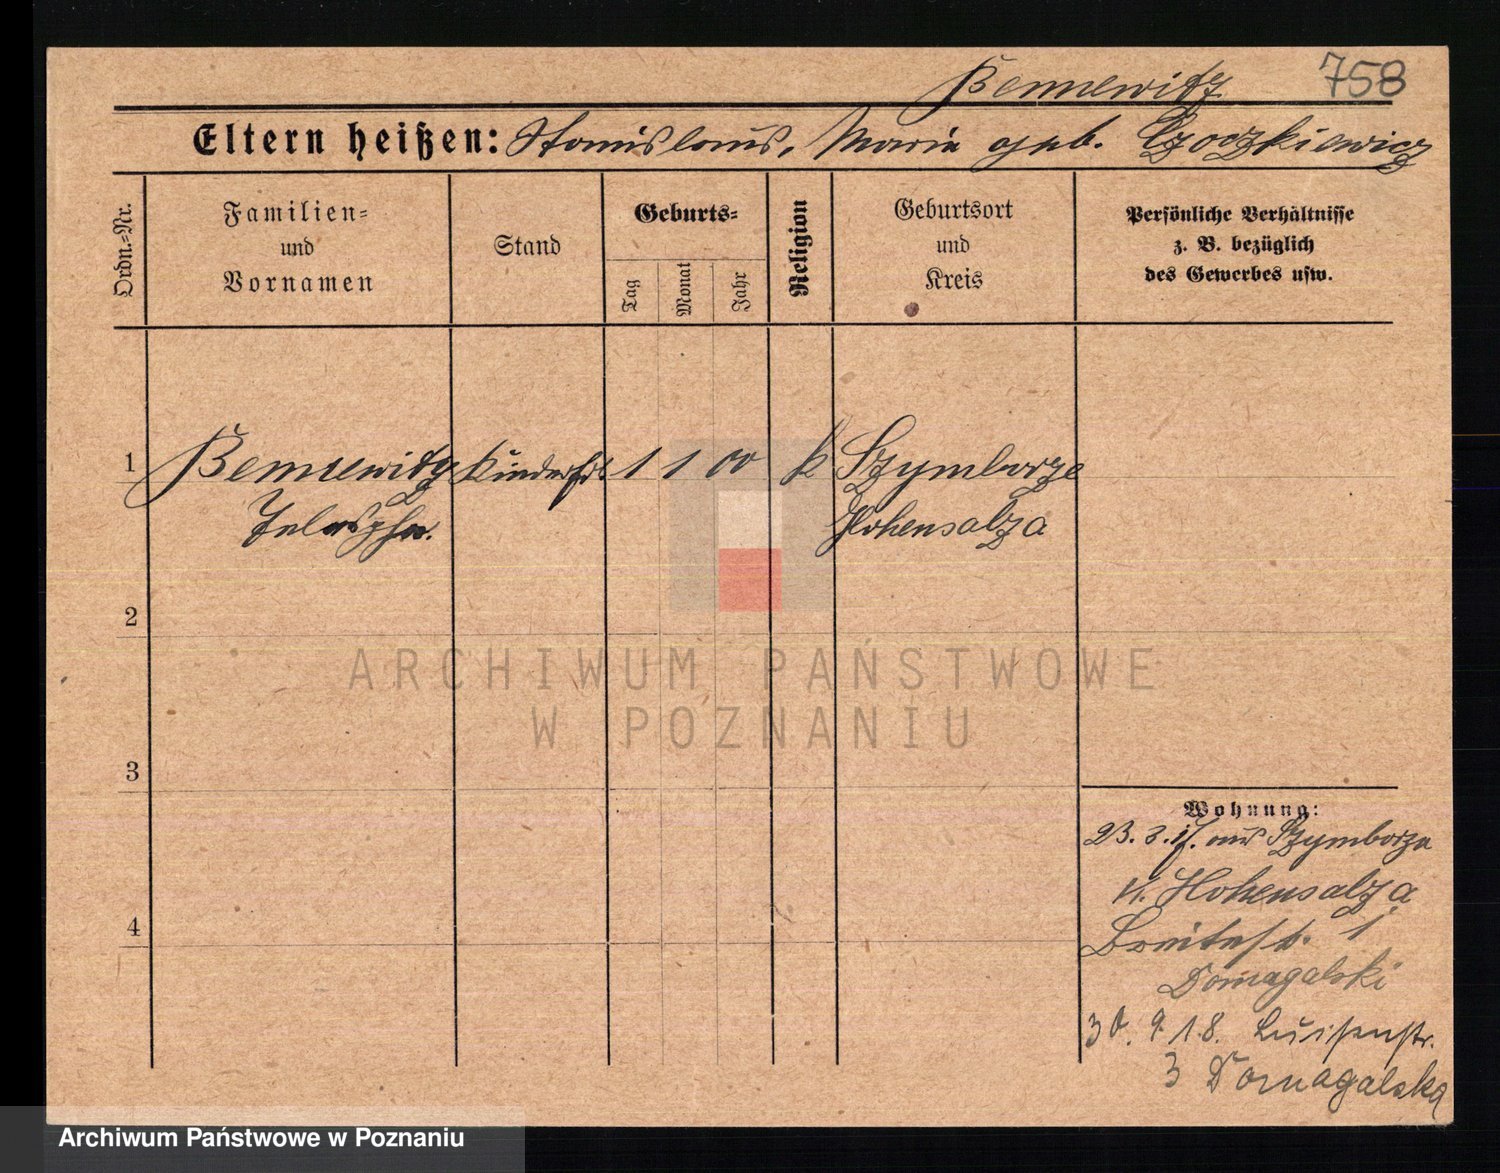 Bennewitz 758
Eltern heißen: Stanislaus, Marie geb. Czoczkiewicz
Ordn.=Nr.
Familien=
und
Vornamen
Stand
Geburts=
Tag
Monat
Jahr
Religion
Geburtsort
und
Kreis
Persönliche Verhältnisse
z. B. bezüglich
des Gewerbes usw.
1 Bennewitz Kinderfrl. 1 1 00 k Szymborze
Hohensalza
2
3
4
Wohnung:
23. 3. 17. aus Szymborze
K. Hohensalza
Breitestr. 1
Domagalski
30. 9. 18. Luisenstr.
3 Domagalska
ARCHIWUM PAŃSTWOWE
W POZNANIU
Archiwum Państwowe w Poznaniu